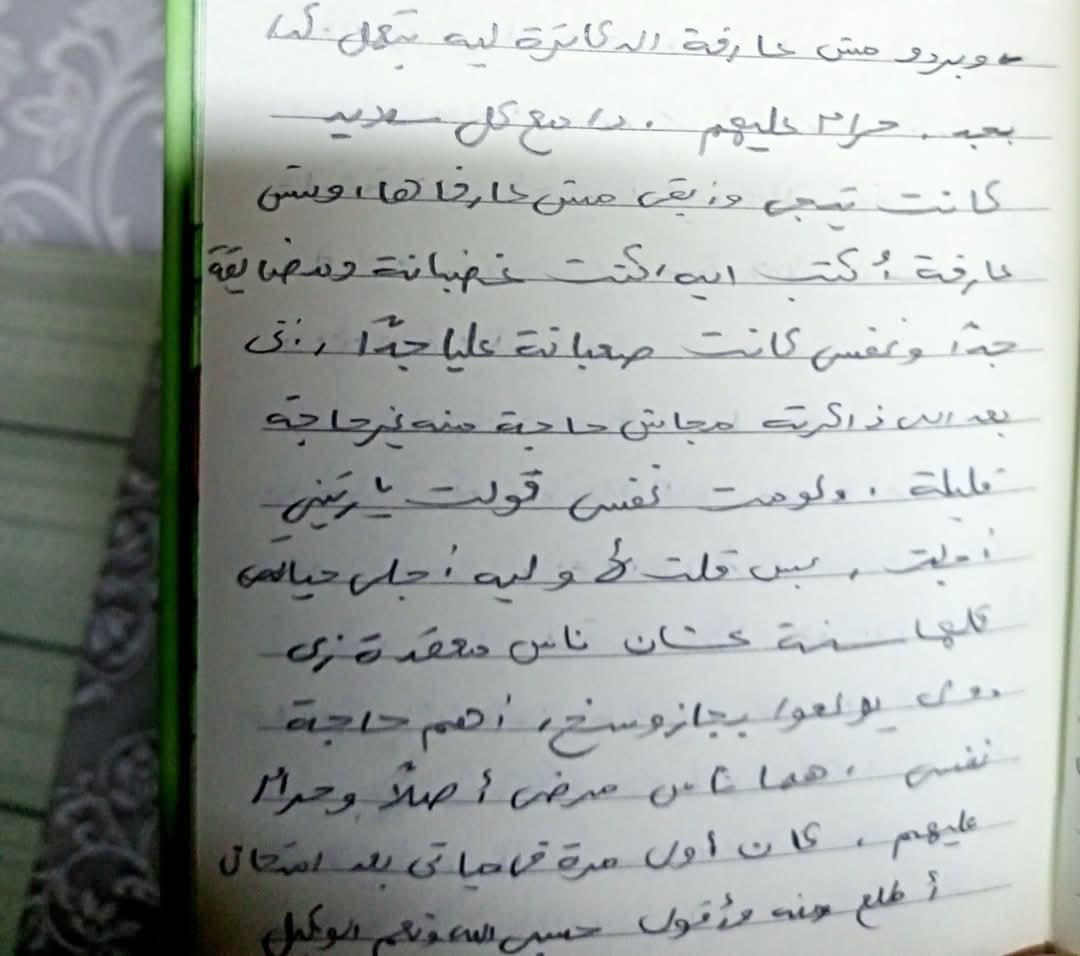 وبردو مش عارفة الدكاترة ليه بتعمل كدا
بجد . حرام عليهم . دا مع كل
كانت تيجى وتبقى مش عارفاها، ومش
عارفة أكتب ايه، كنت غضبانة ومضايقة
جداً ونفسى كانت صعبانة عليا جداً، انى
بعد اللى ذاكرته مجاش حاجة منه غير حاجة
قليلة . ولومت نفسى قولت ياريتنى
أجلت , بس قلت لأ وليه أجلى حياتى
كلها سنة عشان ناس معقدة زى
دول يولعوا بجاز وسخ، أهم حاجة
نفسى . هما ناس مرضى أصلاً وحرام
عليهم . كان أول مرة فى حياتى بعد امتحان
أطلع منه وأقول حسبى الله ونعم الوكيل